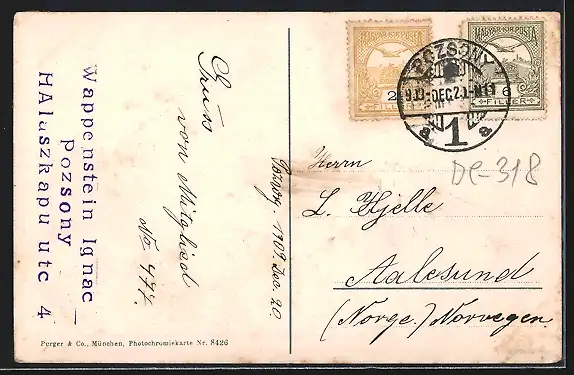 Wappenstein Ignac
pozsony
HAlaszkapu utc 4
Gruss
von Mitglied
No 477.
Pozsony. 1909. Dec. 20.
MAGYAR KIR. POSTA
2
FILLÉR
MAGYAR KIR. POSTA
6
FILLÉR
POZSONY
909 DEC 20
1
a a
DC-318
Herrn
L. Hjelle
Aalesund
(Norge.) Norvegen.
Purger & Co., München, Photochromiekarte Nr. 8426